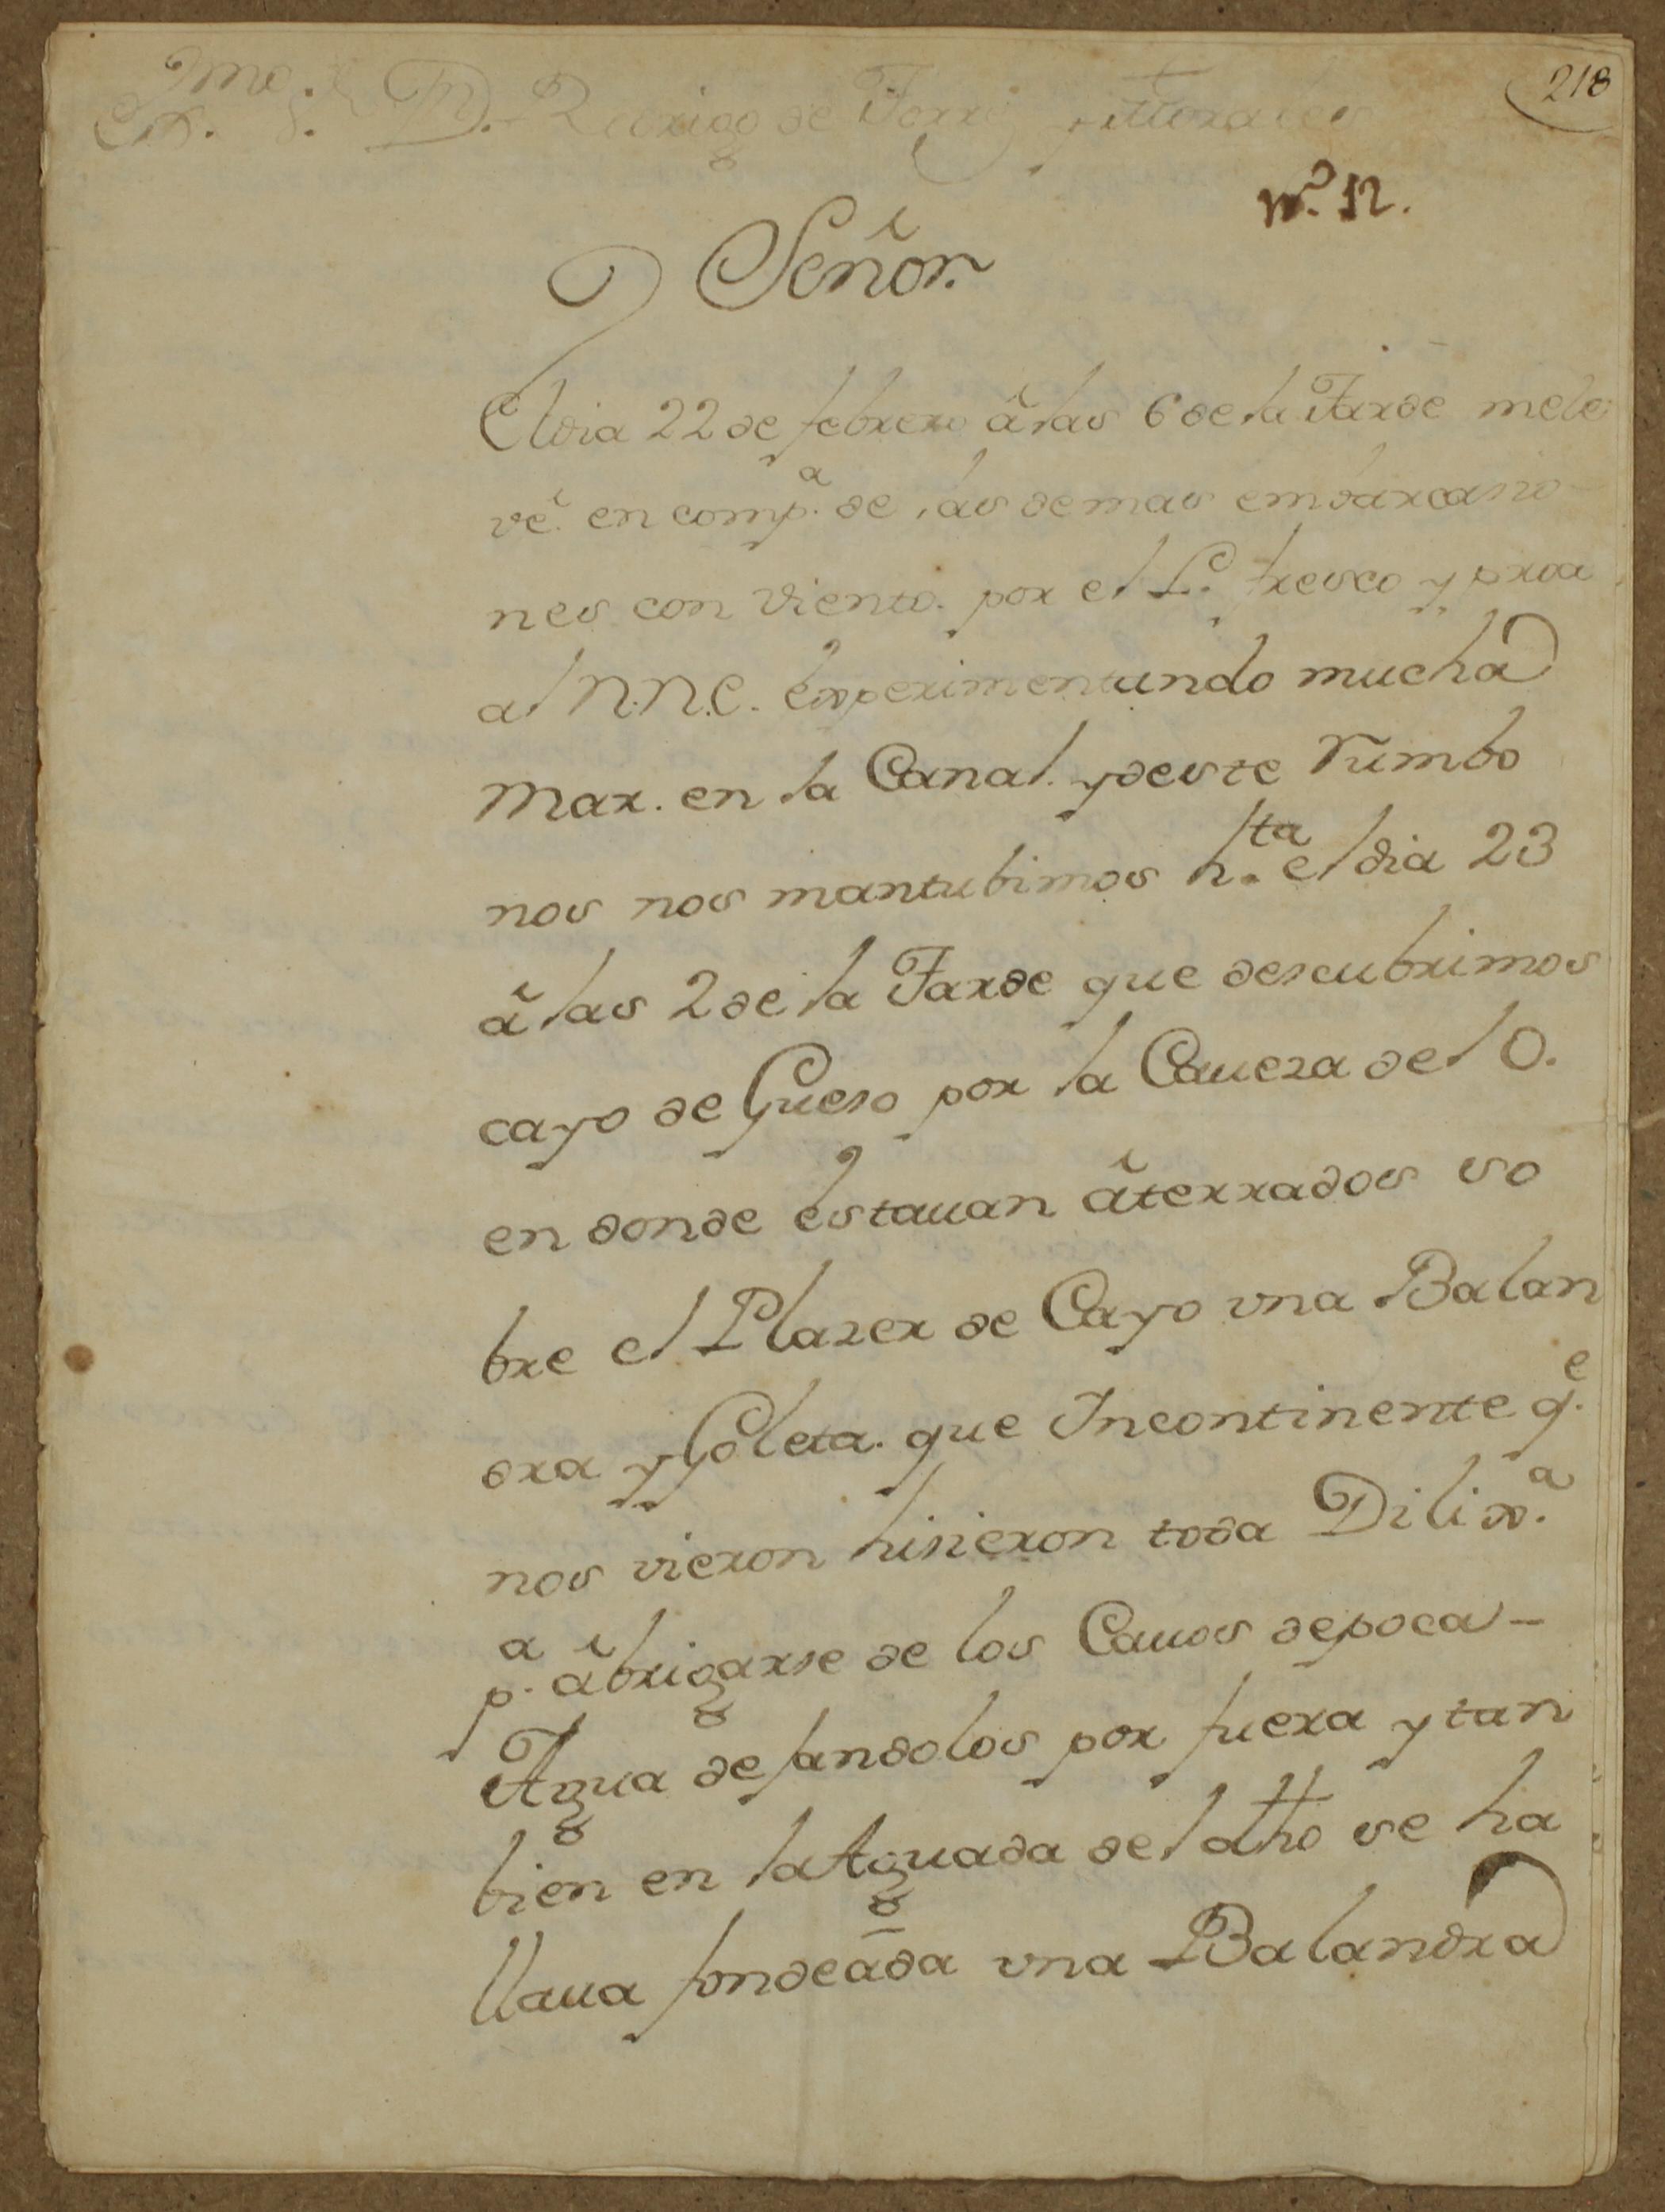 218
Exmo. S. D. Rodrigo de Torres y Morales
nº. 12.
Señor.
El dia 22 de febrero â las 6 de la Tarde mele
vê. en comp.ª de las demas embarcasio
nes con viento. por el L. fresco y proa
al N.N.E. experimentando mucha
Mar. en la Canal. y deste Rumbo
nos nos mantubimos h.ta el dia 23
â las 2 de la Tarde que descubrimos
cayo de Gueso por la Caueza del O.
en donde estauan âterrados so
bre el Plazer de Cayo una Balan
dra y Goleta. que Incontinente q.e
nos vieron hisieron toda Dilix.ª
p.ª âbrigarse de los Cauos de poca -
Agua dejandolos por fuera y tan
bien en la Aguada del atto se ha
llaua fondeada una Balandra